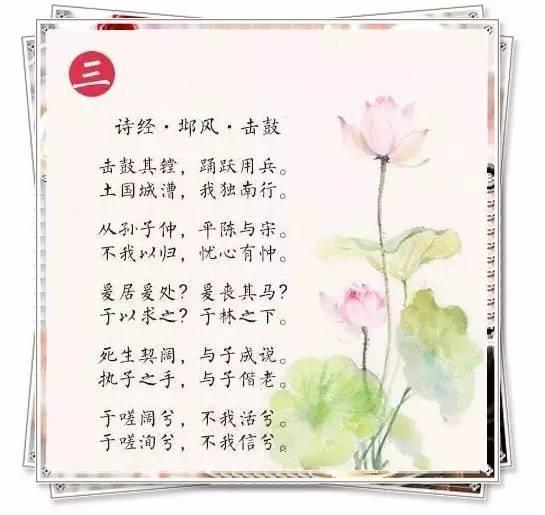 三
诗经·邶风·击鼓
击鼓其镗，踊跃用兵。
土国城漕，我独南行。
从孙子仲，平陈与宋。
不我以归，忧心有忡。
爰居爰处？爰丧其马？
于以求之？于林之下。
死生契阔，与子成说。
执子之手，与子偕老。
于嗟阔兮，不我活兮。
于嗟洵兮，不我信兮。